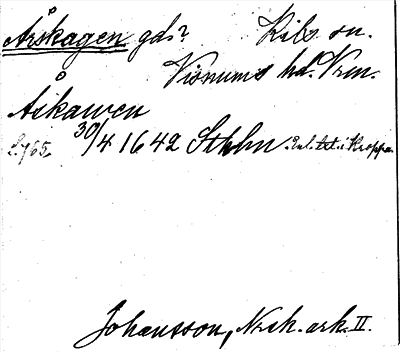 Årskagen gd? Kils sn.
Visnums hd. Vrm.
Åskawen
S. 765. 30/4 1642 Sthlm Enl. brt. i Kroppa
Johansson, Norsk. ark. II.